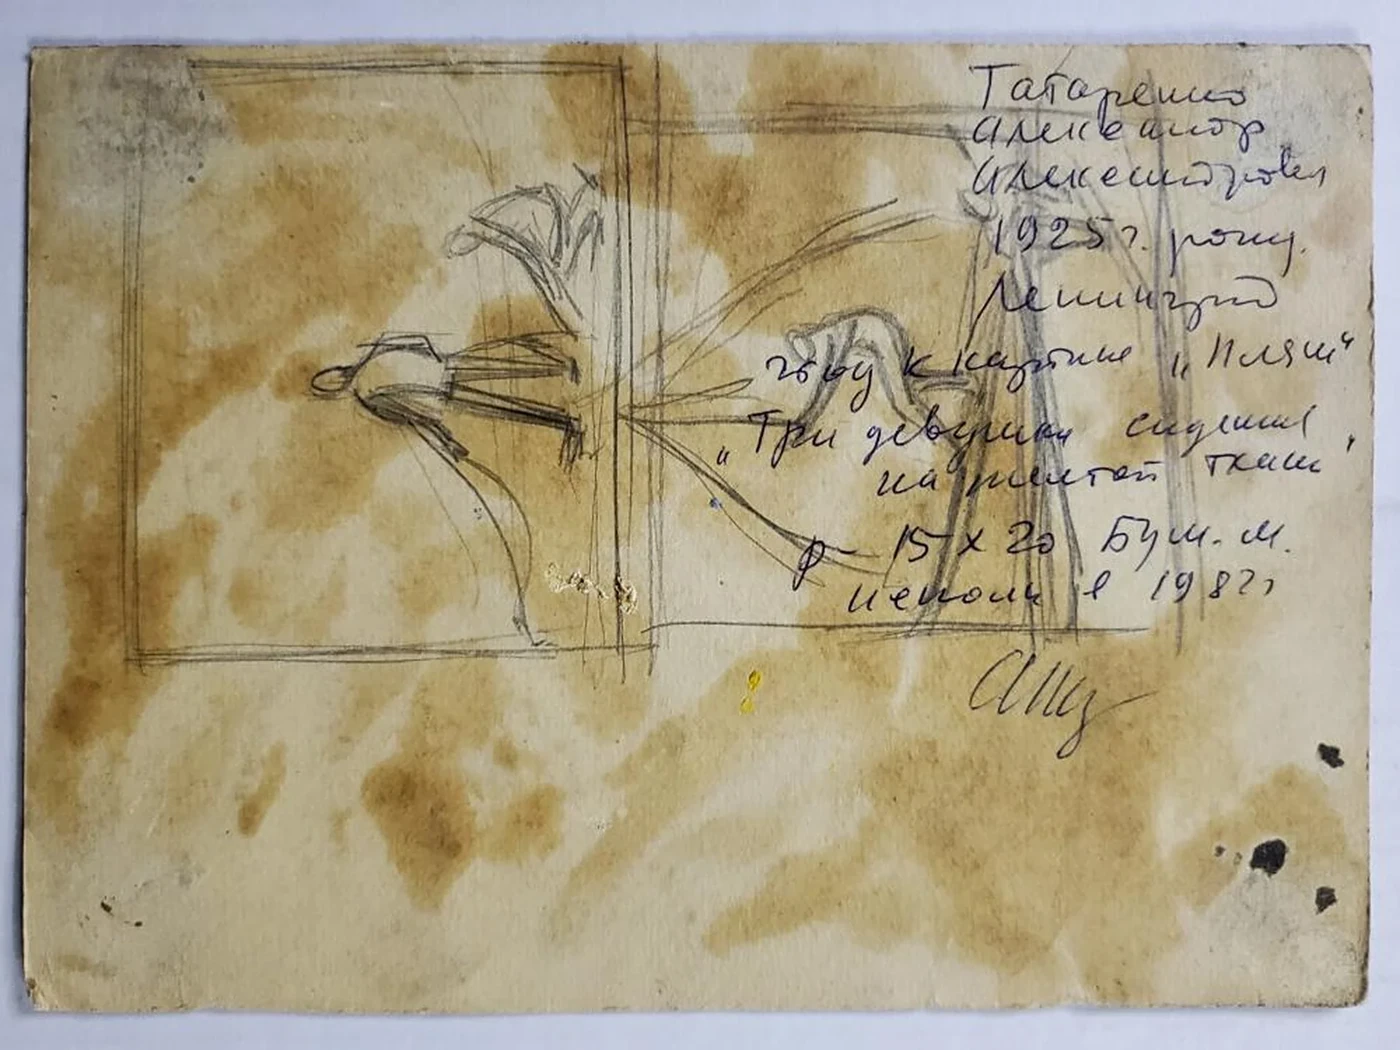 Татаренко
Александр
Александрович
1925 г. рожд.
Ленинград
этюд к картине „Пляж“
„Три девушки сидящие
на желтой ткани“
р- 15 х 20 Бум. м.
исполн в 1982г